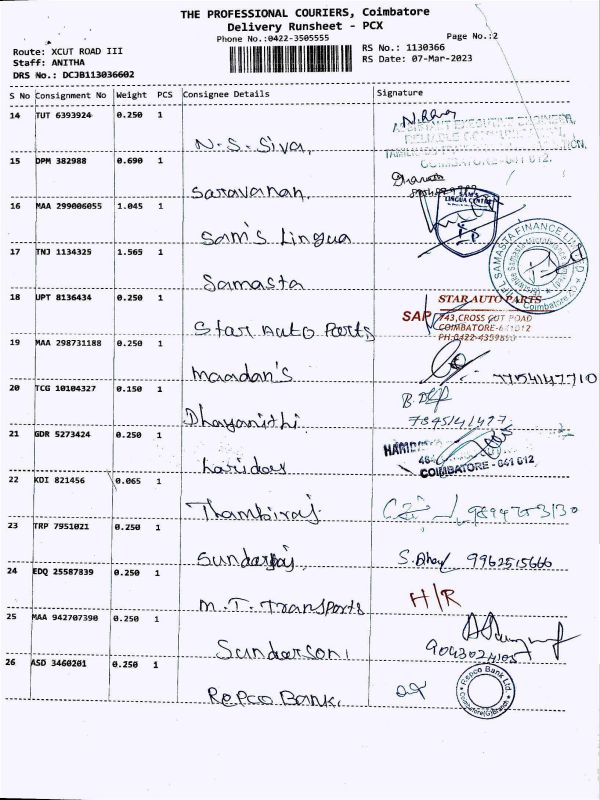 THE PROFESSIONAL COURIERS, Coimbatore
Delivery Runsheet - PCX
Phone No.:0422-3505555
Page No.:2
Route: XCUT ROAD III
RS No.: 1130366
Staff: ANITHA
RS Date: 07-Mar-2023
DRS No.: DCJB113036602
S No Consignment No Weight PCS Consignee Details Signature
14 TUT 6393924 0.250 1
N.S.Siva,
ASSISTANT EXECUTIVE ENGINEER,
COIMBATORE-641 012.
15 DPM 382988 0.690 1
Saravanan.
Bharath
16 MAA 299006055 1.045 1
Sam's Lingua
SAM'S LINGUA CENTRE
17 TNJ 1134325 1.565 1
Samasta
IIFL SAMASTA FINANCE LIMITED
18 UPT 8136434 0.250 1
Star Auto Parts
STAR AUTO PARTS
SAP 743,CROSS CUT ROAD
COIMBATORE-641012
19 MAA 298731188 0.250 1
Maadan's
20 TCG 10104327 0.150 1
Dhayanithi
21 GDR 5273424 0.250 1
haridos
COIMBATORE - 641 012
22 KDI 821456 0.065 1
Thambiraj
23 TRP 7951021 0.250 1
Sundarraj,
9962515666
24 EDQ 25587839 0.250 1
M.T. Transports
H/R
25 MAA 942707390 0.250 1
Sundarson
26 ASD 3460201 0.250 1
Repco Bank.
Repco Bank Ltd